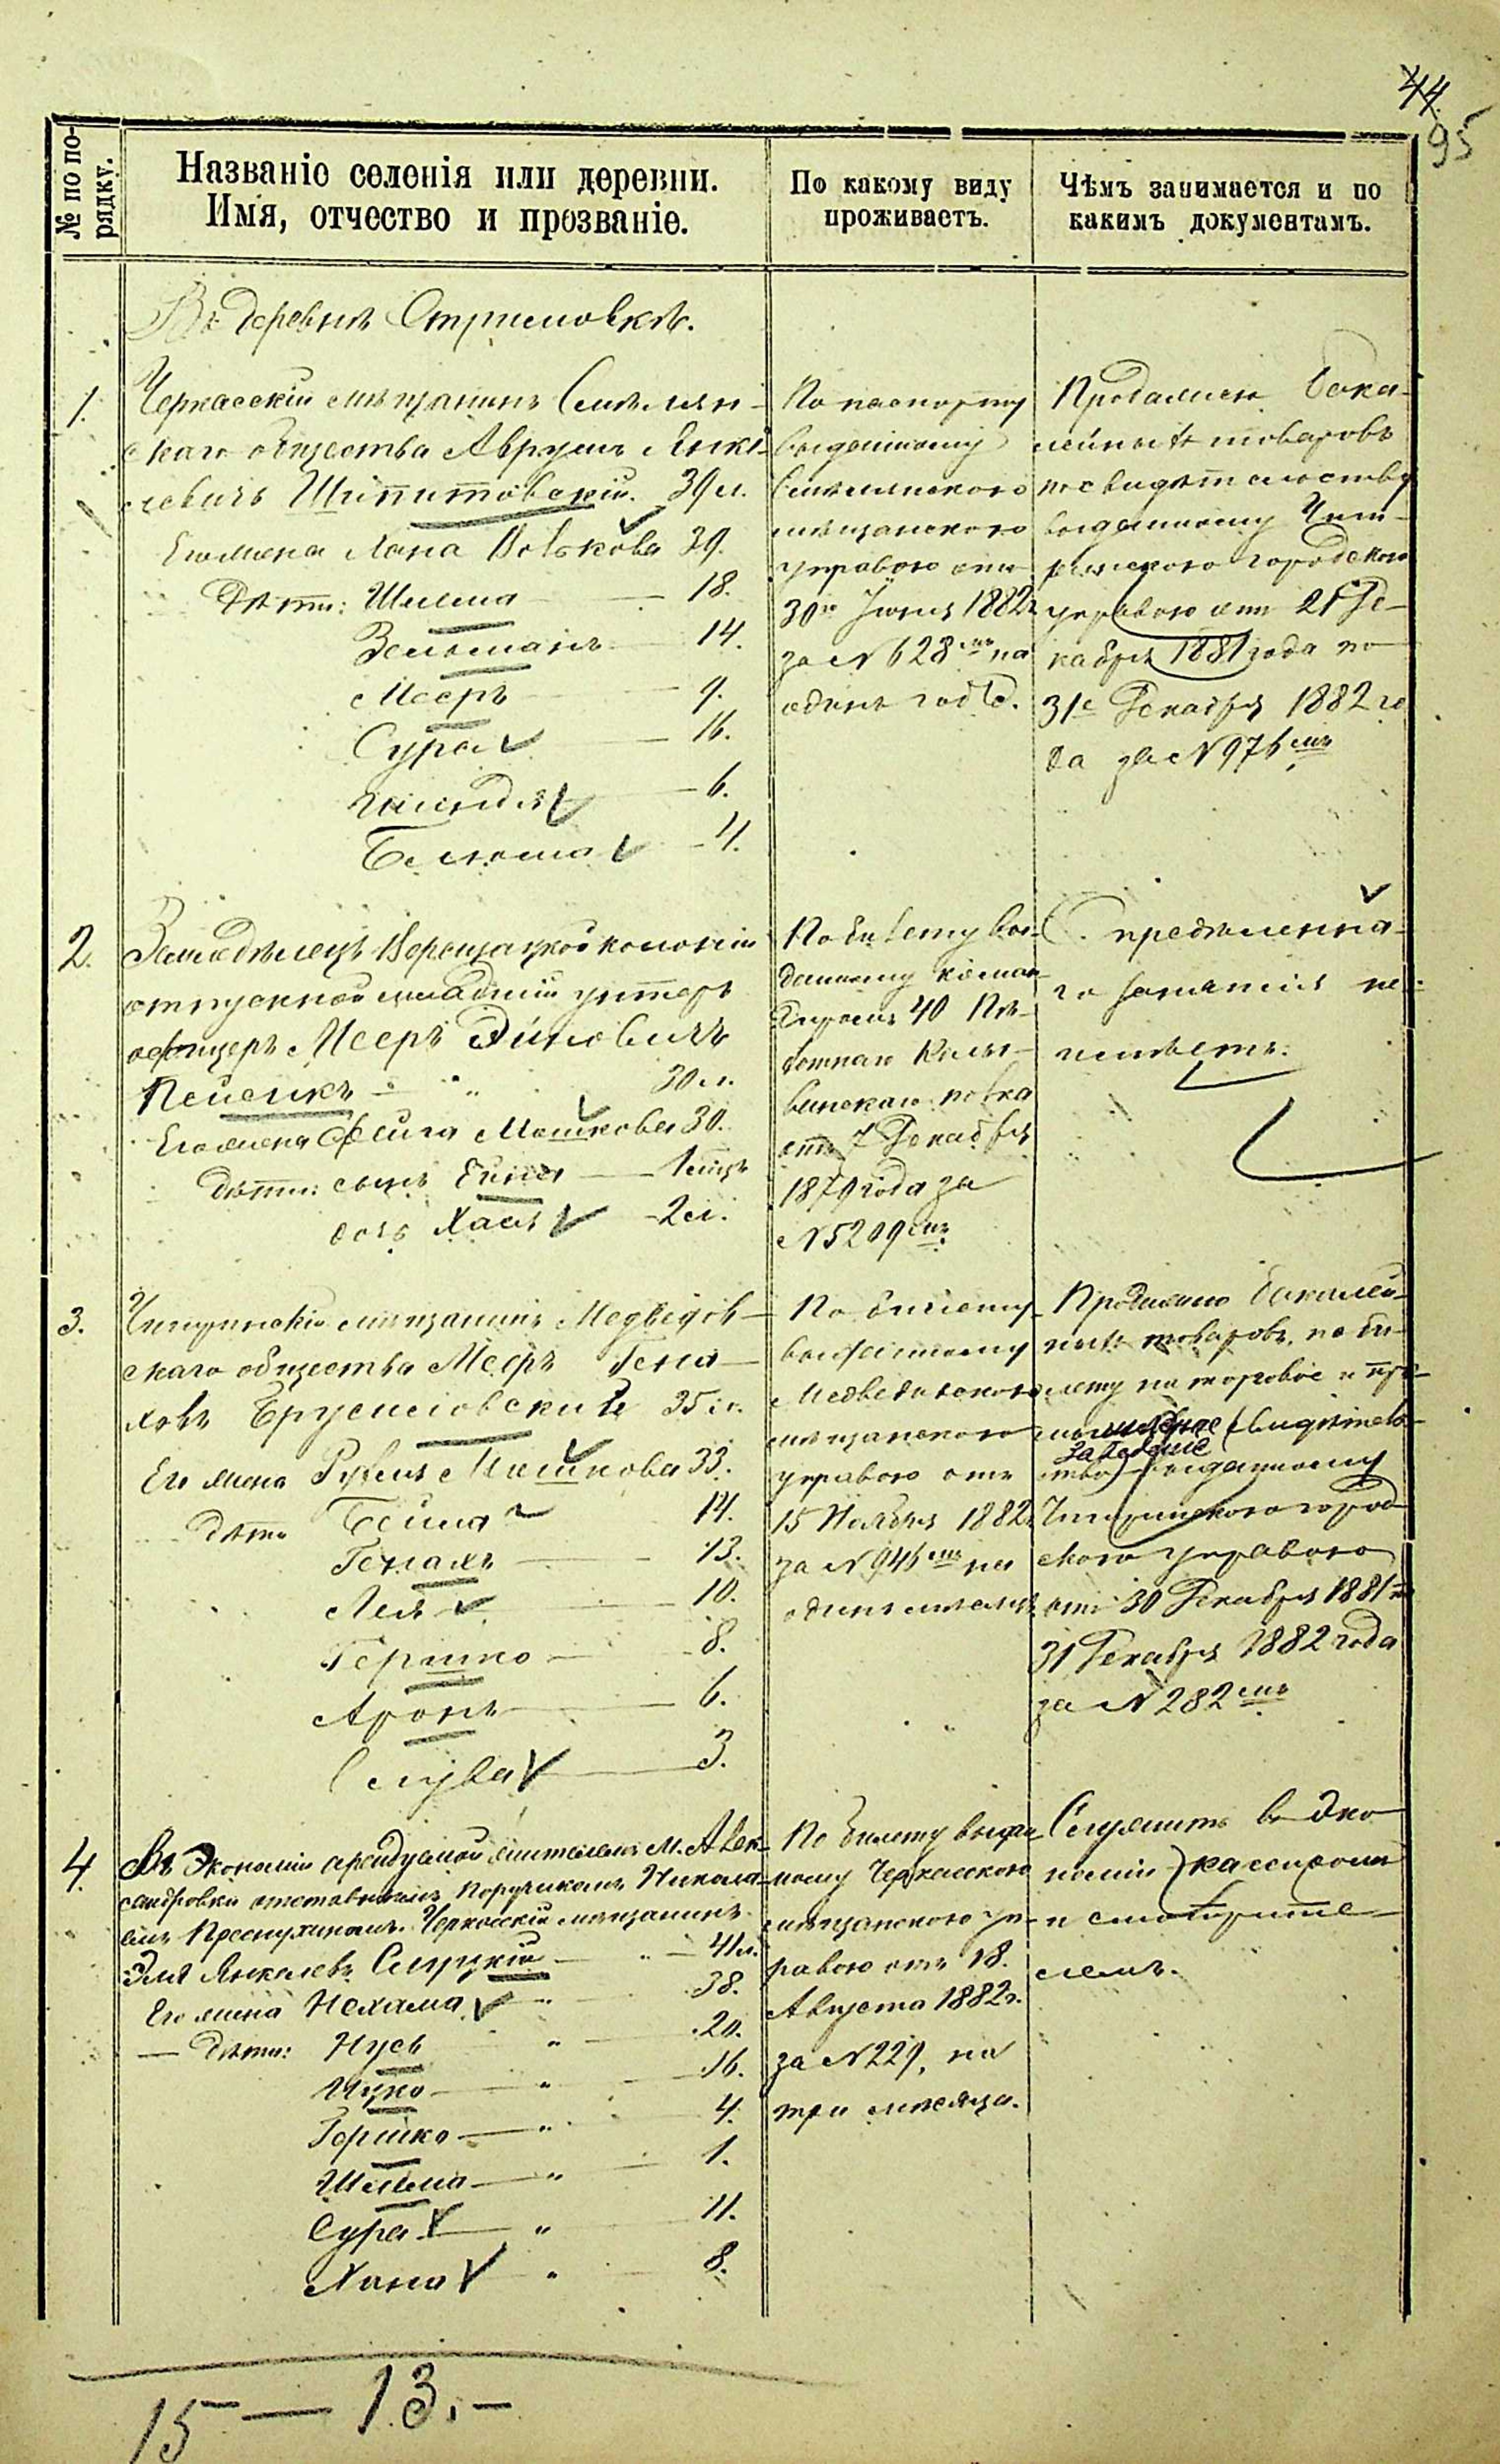 44.
95
№ по по-
рядку.
Названіе селенія или деревни.
Имя, отчество и прозваніе.
По какому виду
проживаетъ.
Чѣмъ занимается и по
какимъ документамъ.
Въ деревнѣ
1.
Черкасскій мѣщанинъ Смѣлян-
скаго общества Аврумъ Янке-
левичъ Шпитовскій. 39 л.
Его жена Хана 39.
Дѣти: Шлема 18.
Зельманъ 14.
Мееръ 9.
Сура 16.
6.
4.
По паспорту
выданному
Смѣлянскою
мѣщанскою
управою отъ
30го Іюня 1882 г.
за № 628мъ на
одинъ годъ.
Продажею бака-
лейныхъ товаровъ
по свидѣтельству
выданному Чиги-
ринскою городскою
управою отъ 21 Де-
кабря 1881 года по
31е Декабря 1882 го
да за № 976мъ
2.
Земледѣлецъ колоніи
отпускной младшій унтеръ
офицеръ Мееръ
30 л.
Его жена Фейга Мошкова 30.
дѣти: сынъ 1 мѣсъ
дочь Хая 2 л.
По билету вы-
данному коман-
диромъ 40 Пѣ-
хотнаго Колы-
ванскаго полка
отъ 7 Декабря
1879 года за
№ 5209мъ
Опредѣленна-
го занятія не
имѣетъ.
3.
Чигиринскій мѣщанинъ Медвѣдов-
скаго общества Мееръ Гена-
ховъ Брусиловскій 35 л.
Его жена Рухля Мошкова 33.
Дѣти Бейла 14.
Генахъ 13.
Лея 10.
Гершко 8.
Аронъ 6.
Слува 3.
По билету
выданному
Медведовскою
мѣщанскою
управою отъ
15 Ноября 1882 г.
за № 946мъ на
одинъ мѣсяцъ
Продажею бакалей-
ныхъ товаровъ по би-
лету на торговое и про-
мышленное (свидѣтель-
заведеніе
ство) выданному
Чигиринскою город-
скою управою
отъ 30 Декабря 1881 по
31 Декабря 1882 года
за № 282мъ
4.
Въ Экономіи арендуемой жителемъ М. Алек-
сандровки отставнымъ Поручикомъ Никола-
емъ Черкасскій мѣщанинъ
Эля Янкелевъ Слуцкій 41 л.
Его жена Нехама 38.
Дѣти: Нусь 20.
Ицко 16.
Гершко 4.
Шлема 1.
Сура 11.
Хана 8.
По билету выдан-
ному Черкасскою
мѣщанскою уп-
равою отъ 18.
Августа 1882 г.
за № 229, на
три мѣсяца.
Служитъ въ эко-
номіи кассиромъ
и смотрите-
лемъ.
15 — 13. –